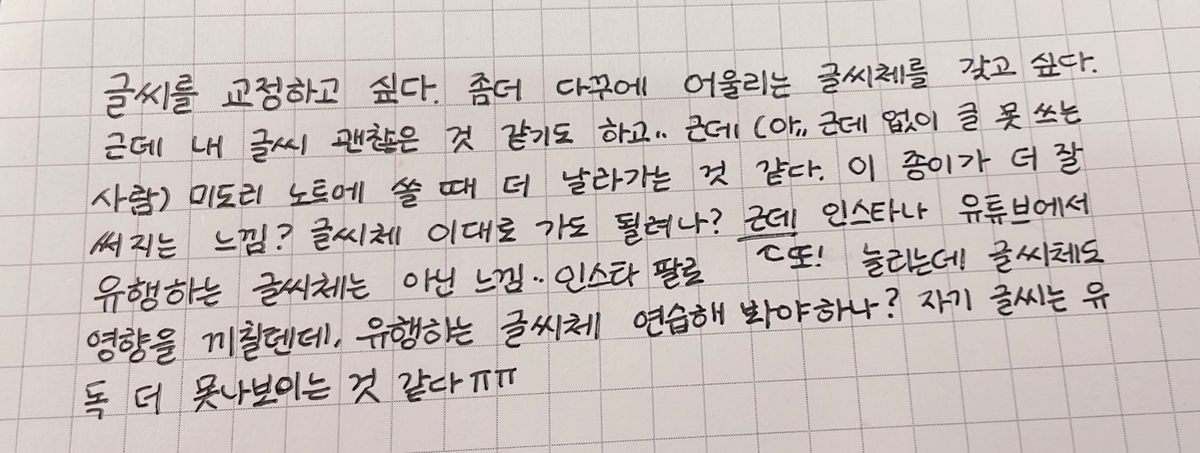 글씨를 교정하고 싶다. 좀더 다꾸에 어울리는 글씨체를 갖고 싶다.
근데 내 글씨 괜찮은 것 같기도 하고.. 근데 (아.. 근데 없이 글 못 쓰는
사람) 미도리 노트에 쓸 때 더 날라가는 것 같다. 이 종이가 더 잘
써지는 느낌? 글씨체 이대로 가도 될려나? 근데 인스타나 유튜브에서
유행하는 글씨체는 아닌 느낌.. 인스타 팔로 또! 늘리는데 글씨체도
영향을 끼칠텐데, 유행하는 글씨체 연습해 봐야하나? 자기 글씨는 유
독 더 못나보이는 것 같다ㅠㅠ